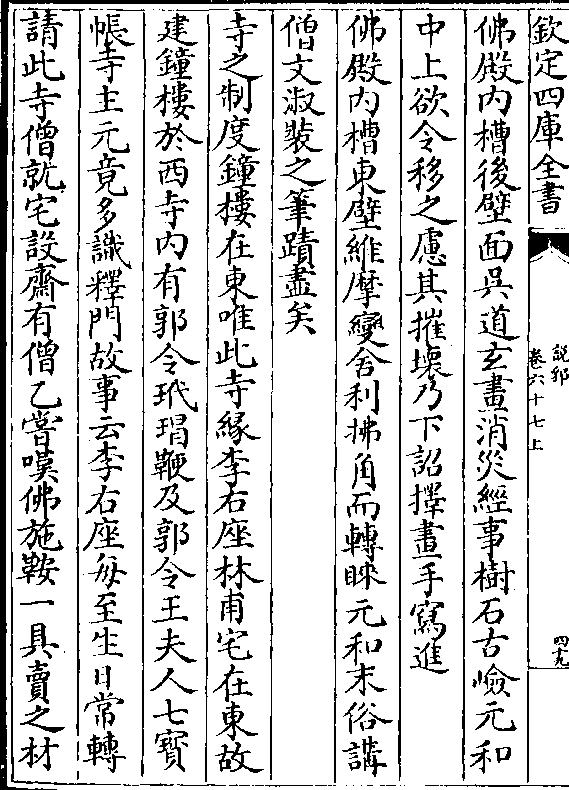 欽定四庫全書
說郛
卷六十七上
四十九
佛殿内槽後壁面吳道玄畫消災經事樹石古嶮元和
中上欲令移之慮其摧壞乃下詔擇畫手寫進
佛殿内槽東壁維摩變舍利拂角而轉睞元和末俗講
僧文淑裝之筆蹟盡矣
寺之制度鐘樓在東唯此寺緣李右座林甫宅在東故
建鐘樓於西寺内有郭令玳瑁鞭及郭令王夫人七寳
帳寺主元竟多識釋門故事云李右座每至生日常轉
請此寺僧就宅設齋有僧乙嘗嘆佛施鞍一具賣之材